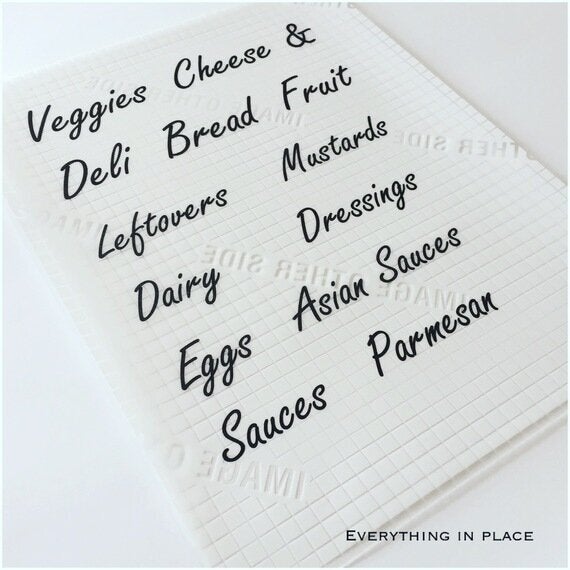 Veggies Cheese &
Deli Bread Fruit
Leftovers Mustards
Dairy Dressings
Eggs Asian Sauces
Sauces Parmesan
IMAGE OTHER SIDE
IMAGE OTHER SIDE
IMAGE OTHER SIDE
EVERYTHING IN PLACE